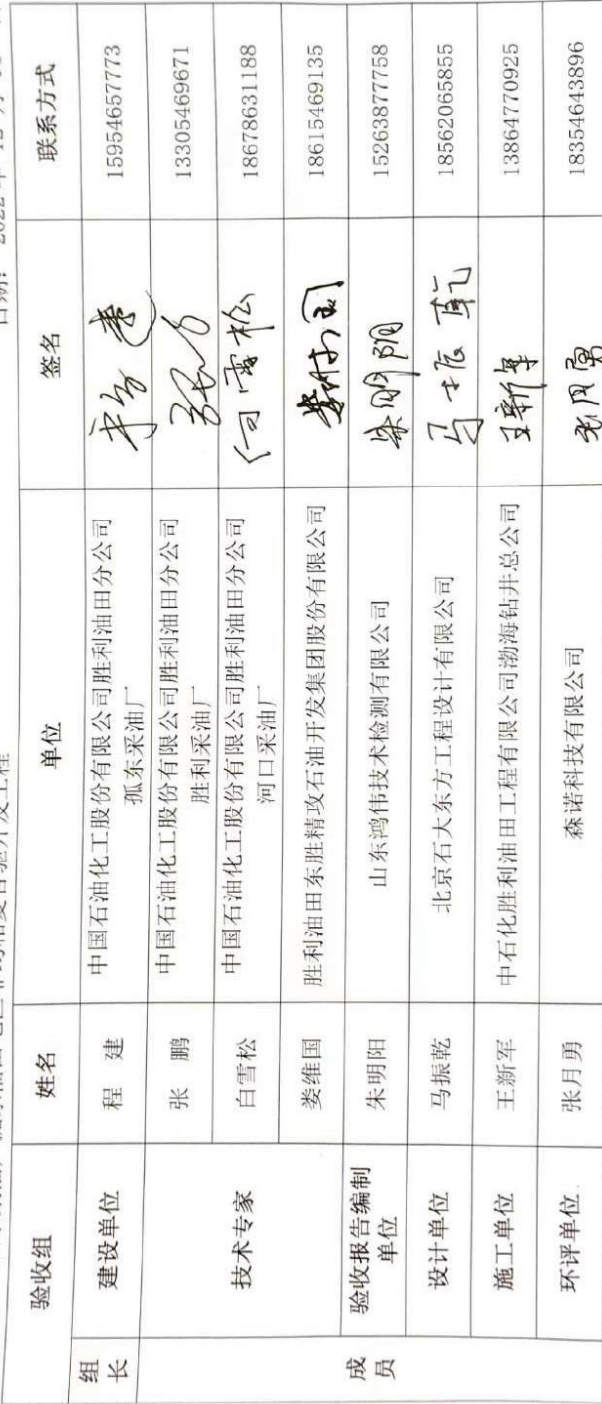 日期： 2022 年 12 月
验收组 姓名 单位 签名 联系方式
组长 建设单位 程 建 中国石油化工股份有限公司胜利油田分公司 15954657773
孤东采油厂
成员 技术专家 张 鹏 中国石油化工股份有限公司胜利油田分公司 13305469671
胜利采油厂
白雪松 中国石油化工股份有限公司胜利油田分公司 白雪松 18678631188
河口采油厂
娄维国 胜利油田东胜精攻石油开发集团股份有限公司 18615469135
验收报告编制 朱明阳 山东鸿伟技术检测有限公司 朱明阳 15263877758
单位
设计单位 马振乾 北京石大东方工程设计有限公司 马振乾 18562065855
施工单位 王新军 中石化胜利油田工程有限公司渤海钻井总公司 王新军 13864770925
环评单位 张月勇 森诺科技有限公司 张月勇 18354643896